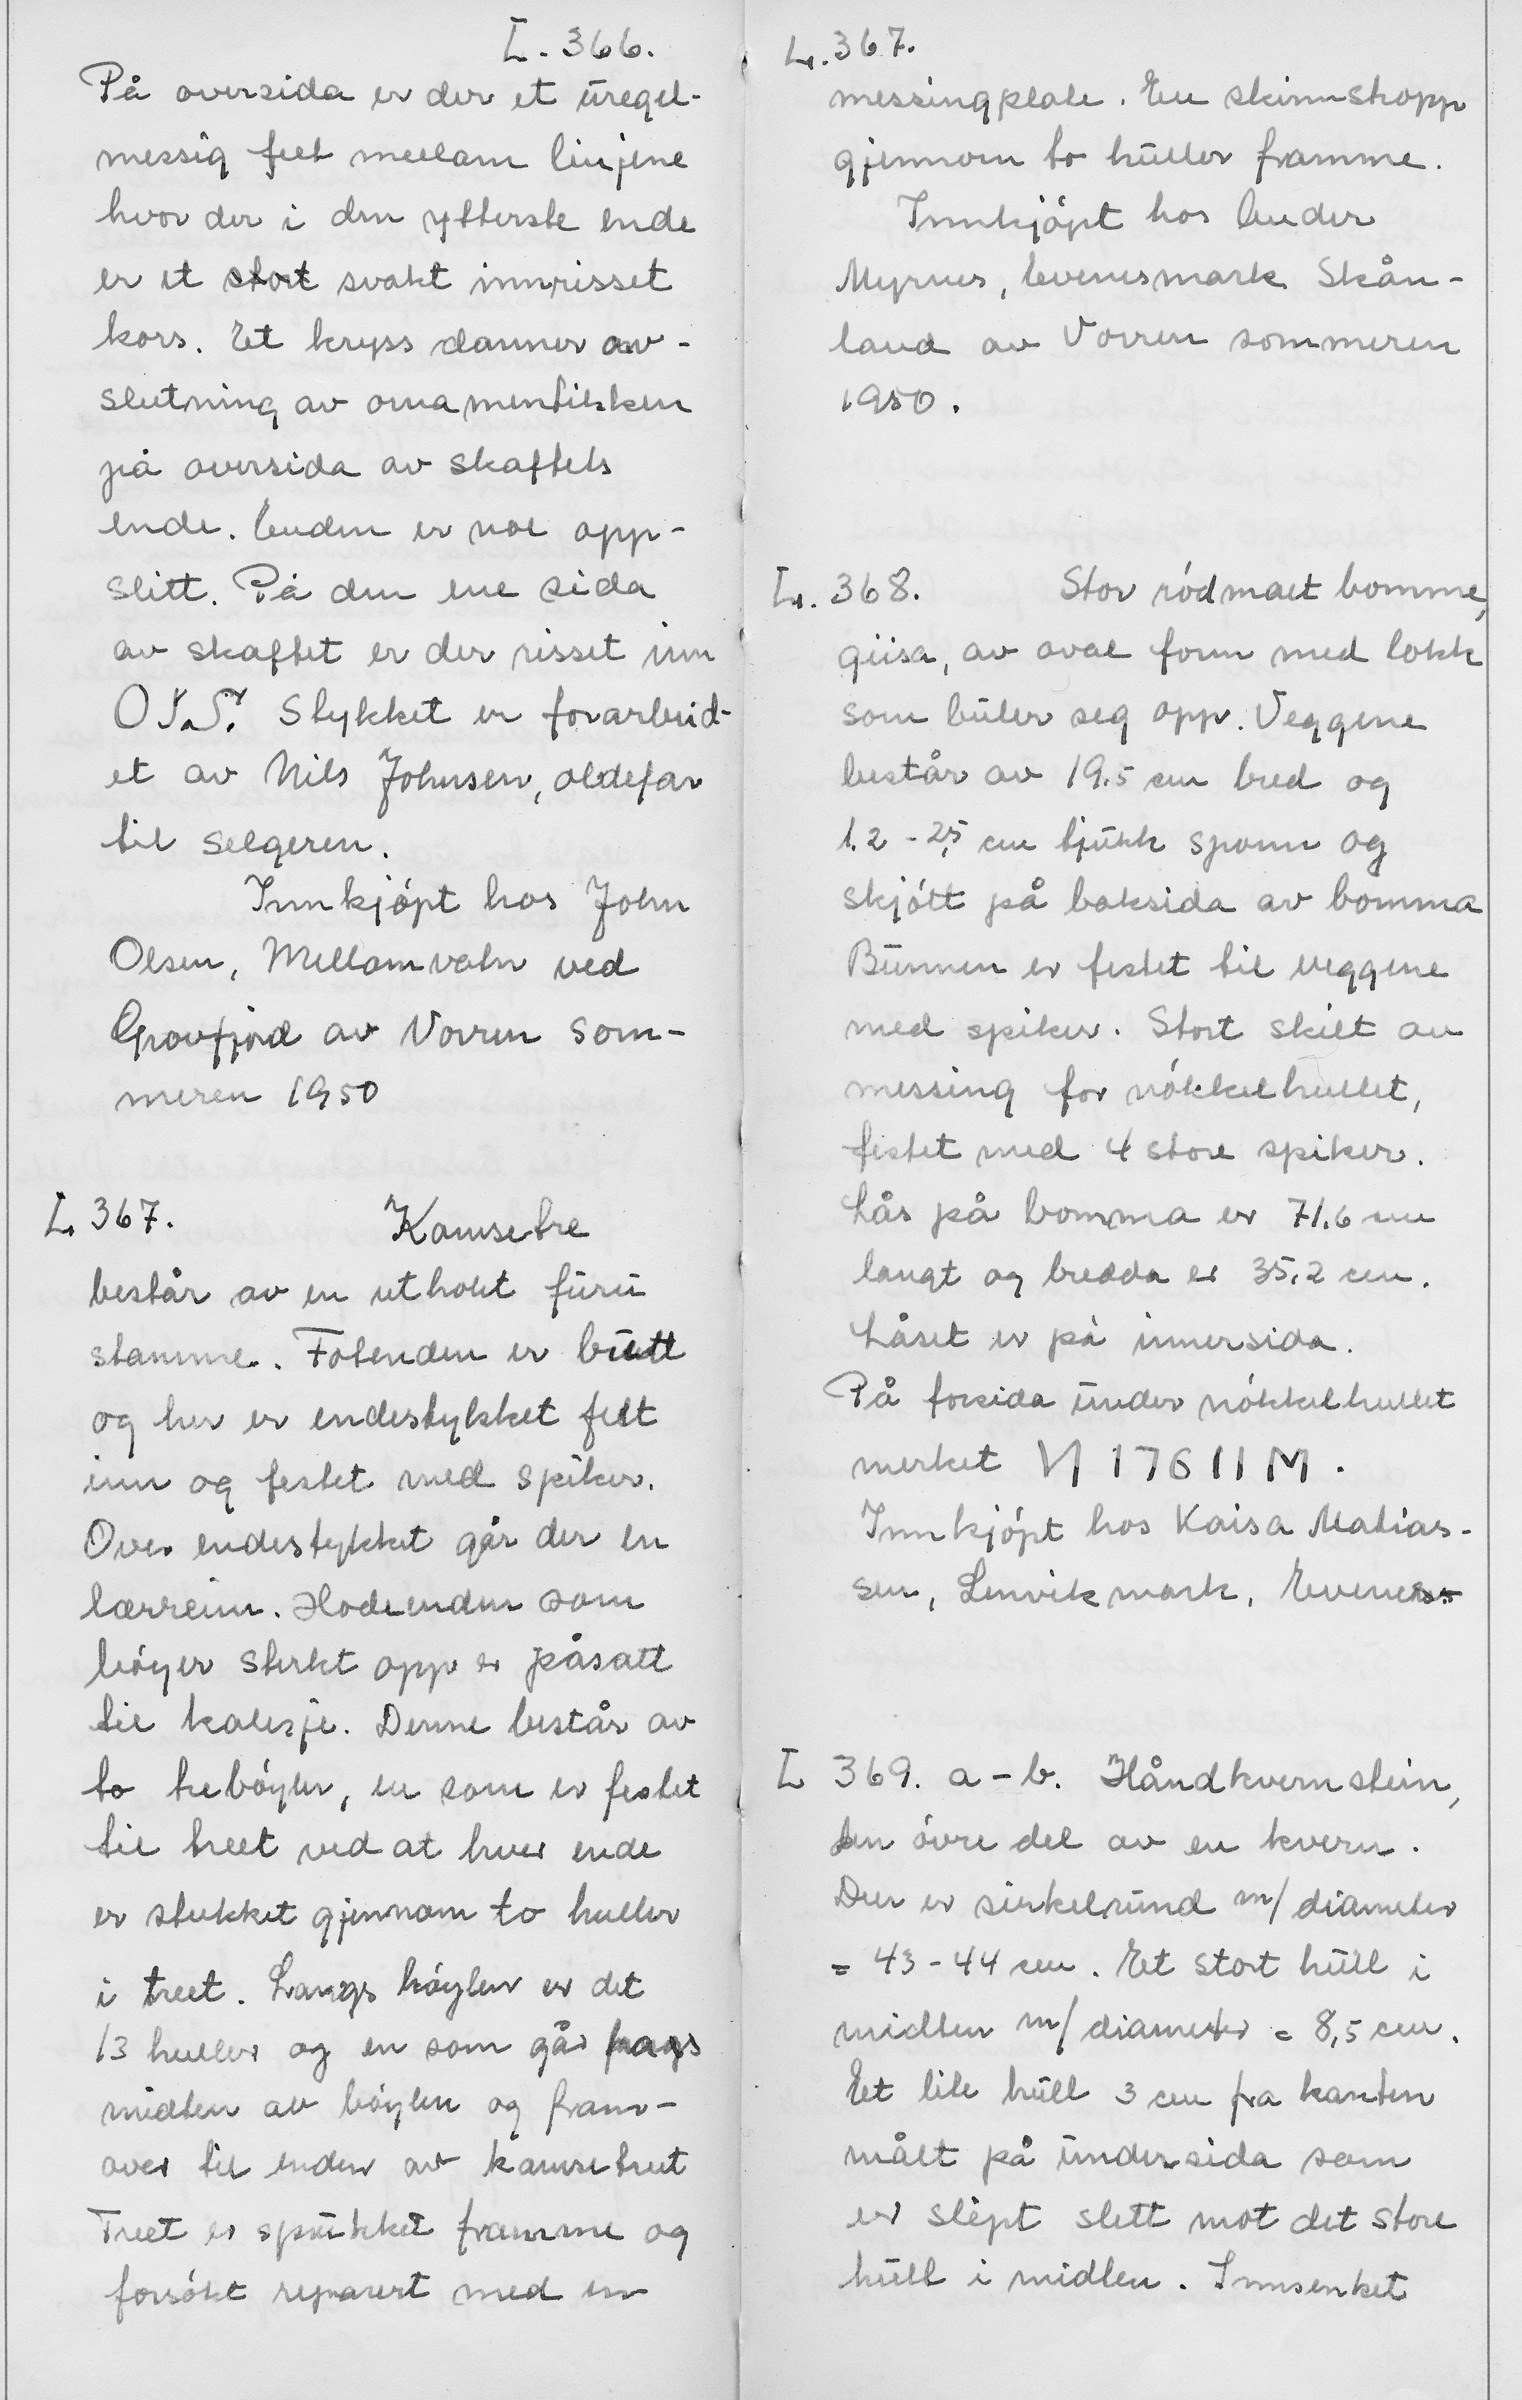 L. 366.
På oversida er der et uregel-
messig felt mellom linjene
hvor der i den ytterste ende
er et stort svakt innrisset
kors. Et kryss danner av-
slutning av ornamentikken
på oversida av skaftets
ende. Enden er noe opp-
slitt. På den ene sida
av skaftet er der risset inn
O J. S. Stykket er forarbeid-
et av Nils Johnsen, oldefar
til selgeren.
Innkjøpt hos John
Olsen, Mellomvatn ved
Grovfjord av Vorren som-
meren 1950
L. 367.
Komsetre
består av en utholt furu
stamme. Fotenden er butt
og her er endestykket felt
inn og festet med spiker.
Over endestykket går der en
lærreim. Hodeenden som
bøyer sterkt opp er påsatt
til kalesje. Denne består av
to trebøyler, en som er festet
til treet ved at hver ende
er stukket gjennom to huller
i treet. Langs bøylen er det
13 huller og en som går fra
midten av bøylen og fram-
over til enden av komsetreet
Treet er sprukket framme og
forsøkt reparert med en
L. 367.
messingplate. En skinnstropp
gjennom to huller framme.
Innkjøpt hos Ender
Myrnes, Evenesmark Skån-
land av Vorren sommeren
1950.
L. 368. Stor rødmalt bomme,
giisa, av oval form med lokk
som buler seg opp. Veggene
består av 19.5 cm bred og
1.2 - 2,5 cm tjukk sponn og
skjøtt på baksida av bomma
Bunnen er festet til veggene
med spiker. Stort skilt av
messing for nøkkelhullet,
festet med 4 store spiker.
Lås på bomma er 71.6 cm
langt og bredda er 35.2 cm.
Låset er på innersida.
På forsida under nøkkelhullet
merket И 17611 M.
Innkjøpt hos Kaisa Matias-
sen, Lenvik mark, Evenes
L 369. a - b. Håndkvernstein,
den øvre del av en kvern.
Den er sirkelrund m/ diameter
= 43 - 44 cm. Et stort hull i
midten m/ diameter = 8,5 cm.
Et lite hull 3 cm fra kanten
målt på undersida som
er slipt slett mot det store
hull i midten. Innsenket